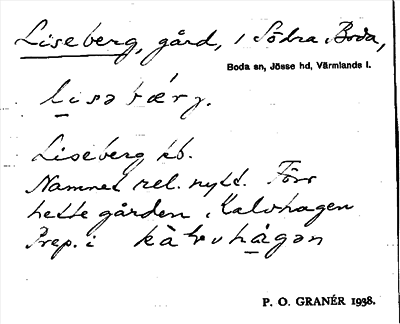 Liseberg, gård, i Södra Boda,
Boda sn, Jösse hd, Värmlands l.
lisəbærj.
Liseberg kb.
Namnet rel. nytt. Förr
hette gården Kalvhagen
Prep. i kàlvhagən
P. O. GRANÉR 1938.